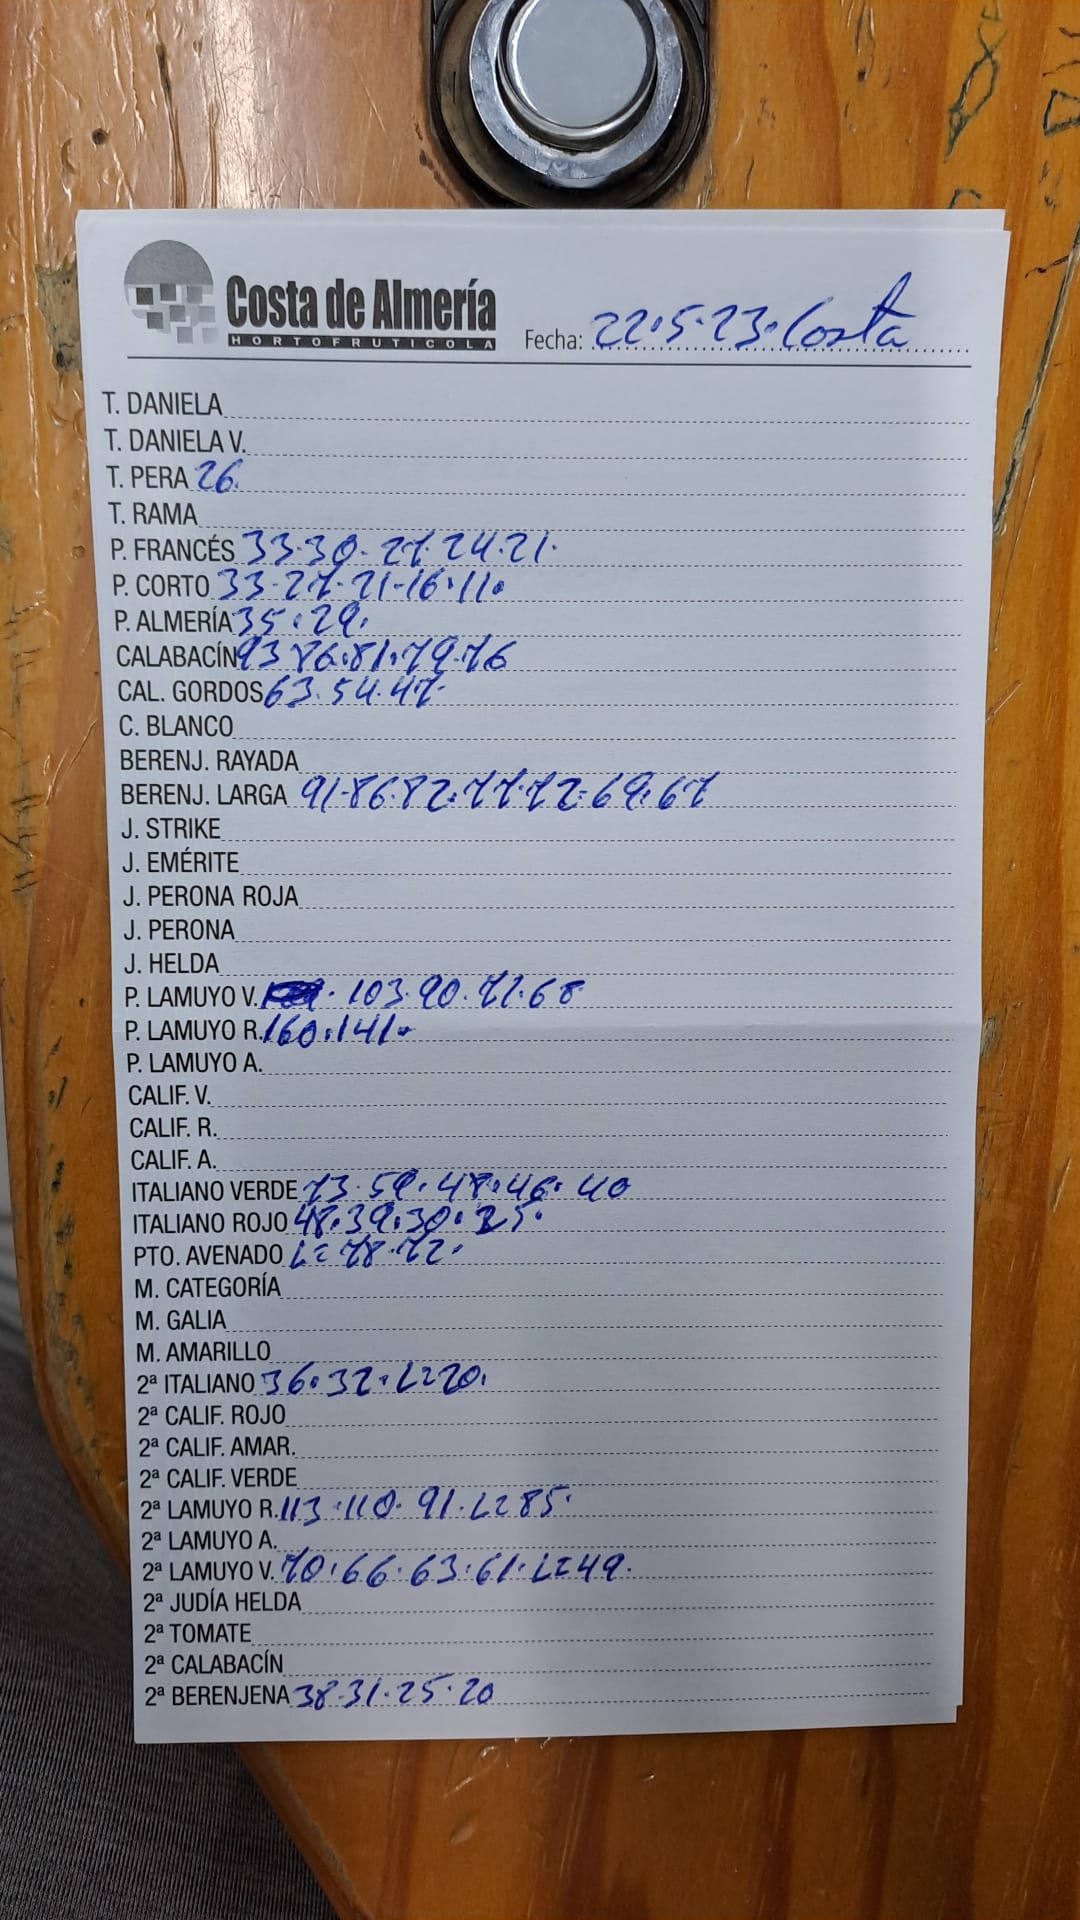 Costa de Almería
HORTOFRUTICOLA
Fecha: 22.5.23. Costa
T. DANIELA
T. DANIELA V.
T. PERA 26.
T. RAMA
P. FRANCÉS 33.30.27.24.21.
P. CORTO 33-27-21-16.11.
P. ALMERÍA 35.29.
CALABACÍN 93 86.81.79.76
CAL. GORDOS 63.54.47.
C. BLANCO
BERENJ. RAYADA
BERENJ. LARGA 91-86.82.77.72.69.67
J. STRIKE
J. EMÉRITE
J. PERONA ROJA
J. PERONA
J. HELDA
P. LAMUYO V. . 103.90.72.68
P. LAMUYO R. 160.141.
P. LAMUYO A.
CALIF. V.
CALIF. R.
CALIF. A.
ITALIANO VERDE 73.59.48.46.40
ITALIANO ROJO 48.39.30.25.
PTO. AVENADO L=78.72.
M. CATEGORÍA
M. GALIA
M. AMARILLO
2ª ITALIANO 36.32.L=20.
2ª CALIF. ROJO
2ª CALIF. AMAR.
2ª CALIF. VERDE
2ª LAMUYO R. 113.110.91.L=85.
2ª LAMUYO A.
2ª LAMUYO V. 70.66.63.61.L=49.
2ª JUDÍA HELDA
2ª TOMATE
2ª CALABACÍN
2ª BERENJENA 38.31.25.20